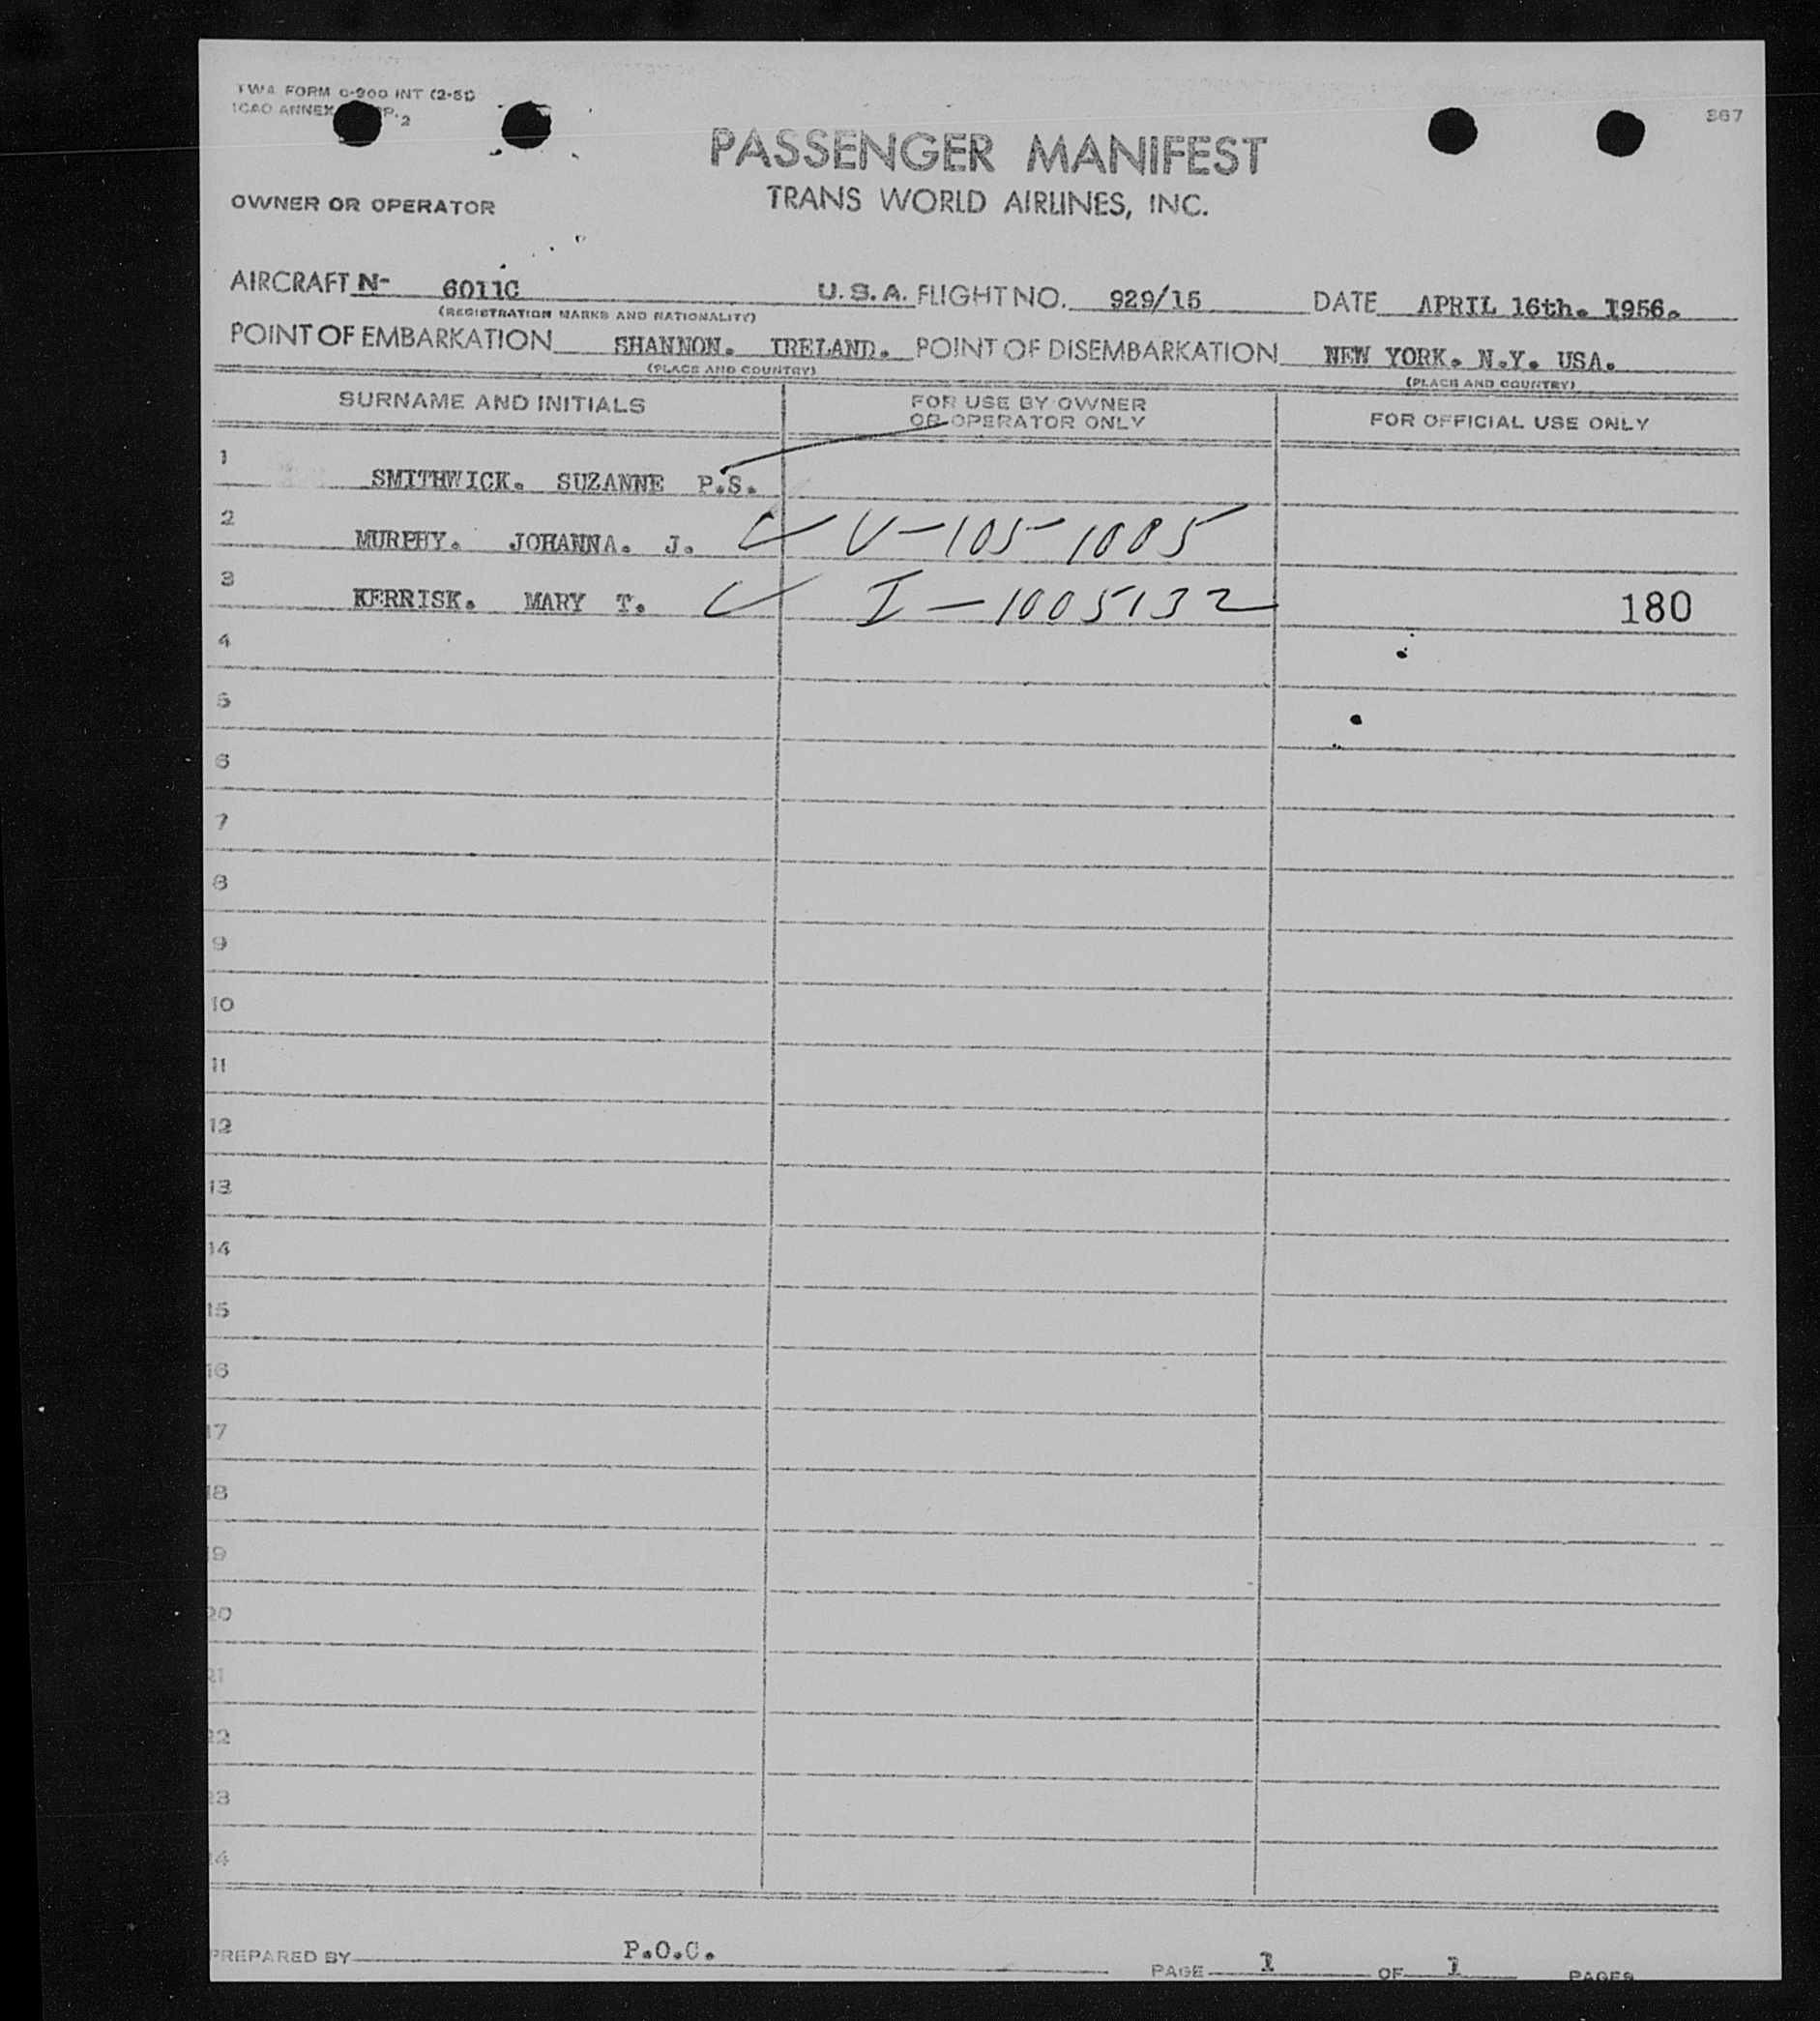 TWA FORM 0-900 INT (2-51)
ICAO ANNEX P. 2
367
PASSENGER MANIFEST
OWNER OR OPERATOR
TRANS WORLD AIRLINES, INC.
AIRCRAFT N- 6011C U.S.A. FLIGHT NO. 929/15 DATE APRIL 16th. 1956.
(REGISTRATION MARKS AND NATIONALITY)
POINT OF EMBARKATION SHANNON. IRELAND. POINT OF DISEMBARKATION NEW YORK. N.Y. USA.
(PLACE AND COUNTRY) (PLACE AND COUNTRY)
SURNAME AND INITIALS FOR USE BY OWNER OR OPERATOR ONLY FOR OFFICIAL USE ONLY
1 SMITHWICK. SUZANNE P.S.
2 MURPHY. JOHANNA. J. V-105-1005
3 KERRISK. MARY T. I-1005132 180
4
5
6
7
8
9
10
11
12
13
14
15
16
17
18
19
20
21
22
23
24
PREPARED BY P.O.C. PAGE 1 OF 1 PAGES